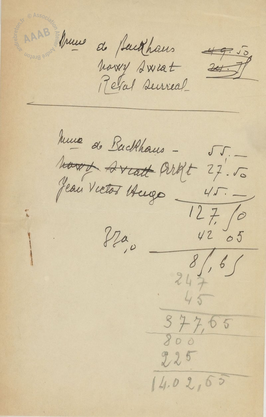 AAAB
Mme de Backhaus 49.50
Nowy Swiat
Retol Surreal
Mme de Backhaus - 55,-
Nowy Swiatt Orkt 27.50
Jean Victor Hugo 45.-
127,50
33%0 42 05
85,65
247
45
377,65
800
225
1402,65